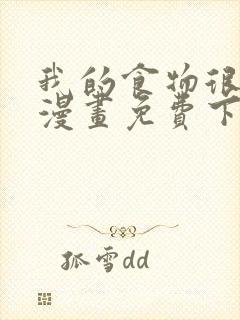 我的食物很
漫畫免費下
孤雪dd